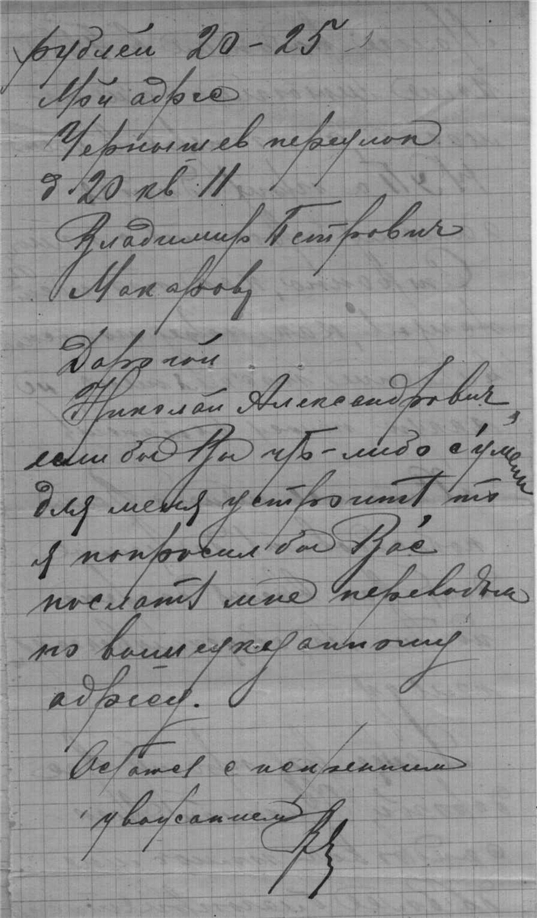 рублей 20-25
Мой адрес
Чернышев переулок
д 20 кв 11
Владимир Петрович
Макарову
Дорогой
Николай Александрович
если бы Вы что-либо сумели
для меня устроить то
я попросил бы Вас
послать мне переводом
по вышеуказанному
адресу.
Остаюсь с искренним
уважением